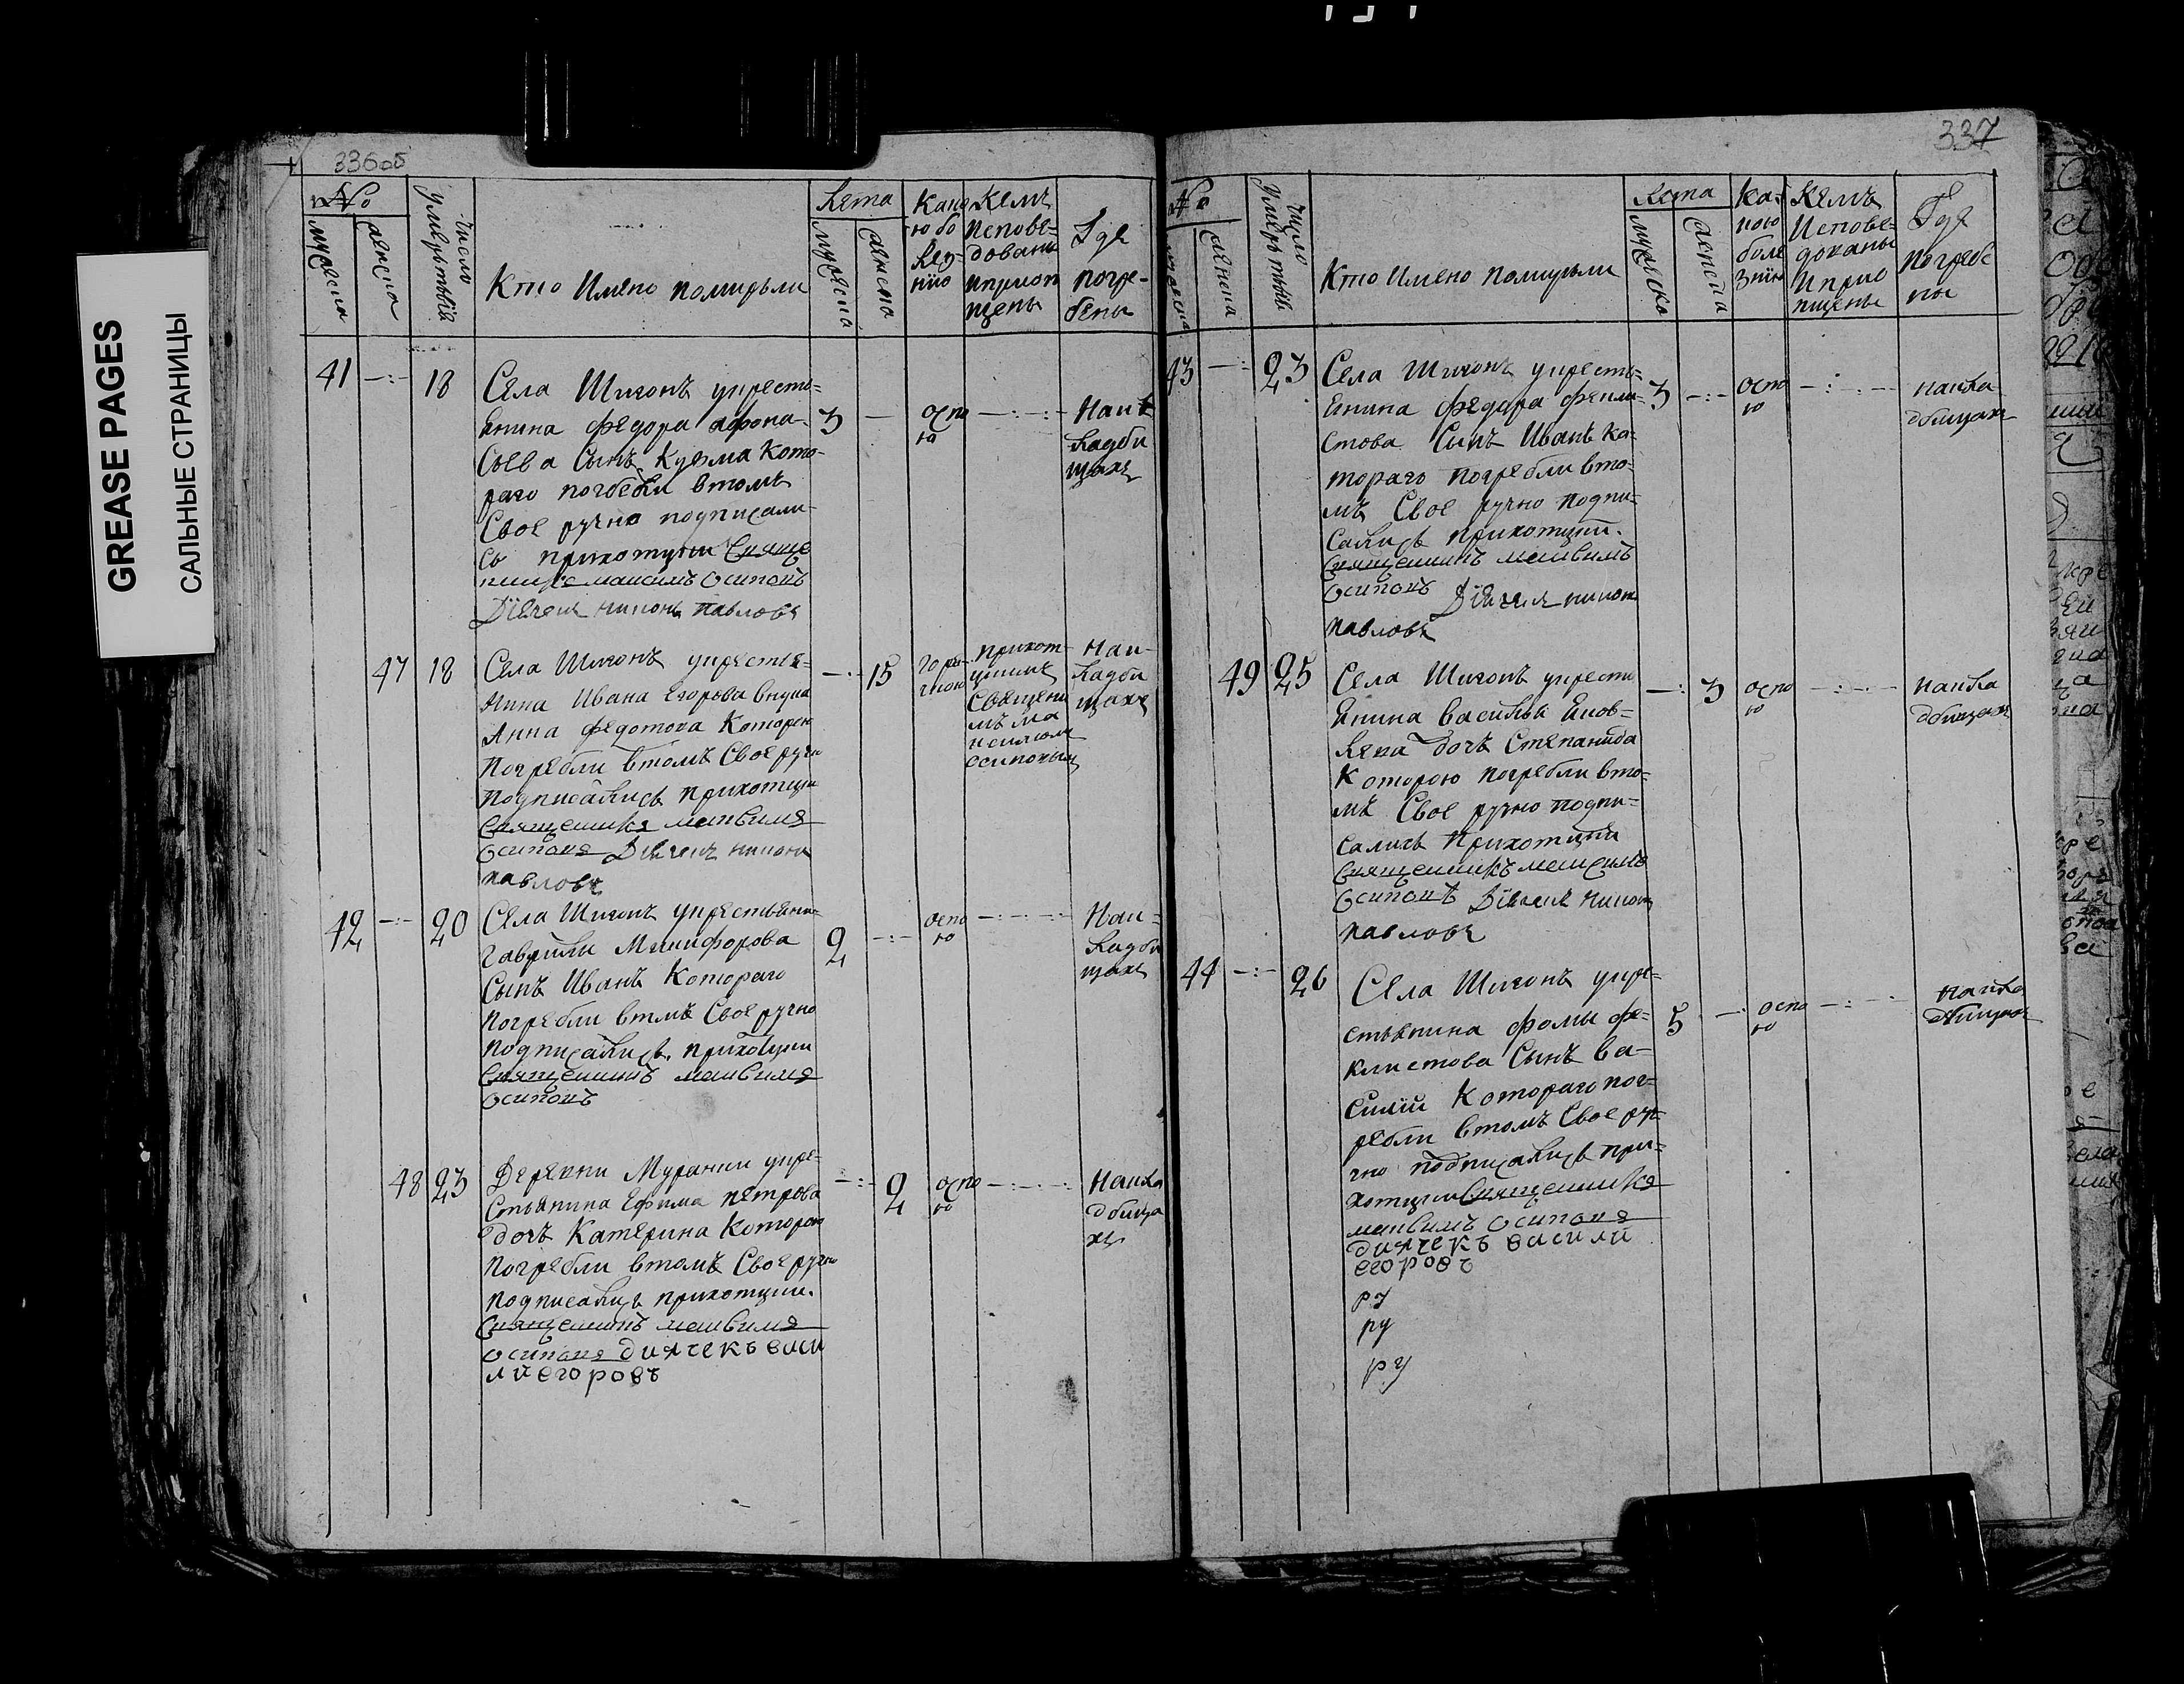 GREASE PAGES
САЛЬНЫЕ СТРАНИЦЫ
336об
№
мужеска
женска
число
умертвия
Кто Имяно помирьли
Лета
мужеска
женска
Какою болезнию
Кемъ
исповедованы
Где
погре-
бены
41 —:— 18
Села Шигонъ укресть=
Янина Федора Афона-
сьева Сынъ Кузма Кото-
раго погребли втомъ
Свое ручно подписали-
сь прихотцыи Священ
никъ Максимъ Осиповъ
Дьячекъ Никонъ Павловъ
3 —
оспо
ю
—:—:—
На ик
ладби
щахъ
47 18
Села Шигонъ укрестья=
нина Ивана Егорова
Анна Федотова Которую
Погребли втомъ Свое ручно
Подписались Прихотцыи
Священникъ Максимъ
Осиповъ Дьячекъ Никонъ
Павловъ
—:— 15
горя-
чкою
прихот-
цкимъ
Священи
мъ Ма
ксимом
осиповым
На к-
ладби
щахъ
42 —:— 20
Села Шигонъ укрестьяни-
Гаврилы Микифорова
Сынъ Иванъ Котораго
Погребли втмъ Свое ручно
подписались прихотцыи
Священникъ Максимъ
Осиповъ
2 —:—
оспо
ю
—:—:—
На к=
ладби
щахъ
48 23
Деревни Муранки укре-
Стьянина Ефима Петрова
дочь Катерина Которую
Погребли втомъ Свое ручно
подписались прихотцыи.
Священникъ Максимъ
Осиповъ дияческъ васи
лй егоровъ
—:— 2
оспо
ю
—:—:—
На кла
дбища
хъ
337
№
женска
число
умертвия
Кто Имяно помирьли
Лета
мужеска
женска
Ка-
кою
боле
знию
Кемъ
Испове-
дованы
И прио
пщены
Где
погребе
ны
43 —:— 23
Села Шигонъ укресть=
Янина Федора Фекли-
стова Сынъ Иванъ Ка-
тораго Погребли вто-
мъ Свое ручно подпи-
сались прихотцыи.
Священникъ Максимъ
Осиповъ Дьячекъ Никонъ
Павловъ
3 —:—
оспо
ю
—:—:—
на кла
дбищахъ
49 25
Села Шигонъ укрести
Янина василья
дочь Степанида
Которою погребли вто-
мъ Свое ручно подпи=
салисъ Прихотцыи
Священникъ Максимъ
Осиповъ Дьячекъ Никонъ
Павловъ
—: 3
оспо
ю
—:—:—
на кла
дбищахъ
44 —:— 26
Села Шигонъ укре-
стьянина Фомы Фе-
клистова Сынъ Ва-
силий Котораго пог-
ребли втомъ Свое ру-
чно подписались при-
хотцыи Священникъ
Максимъ Осиповъ
диячекъ василй
егоровъ
ру
ру
ру
5 —:
оспо
ю
—:—:—
на кла
дбищахъ